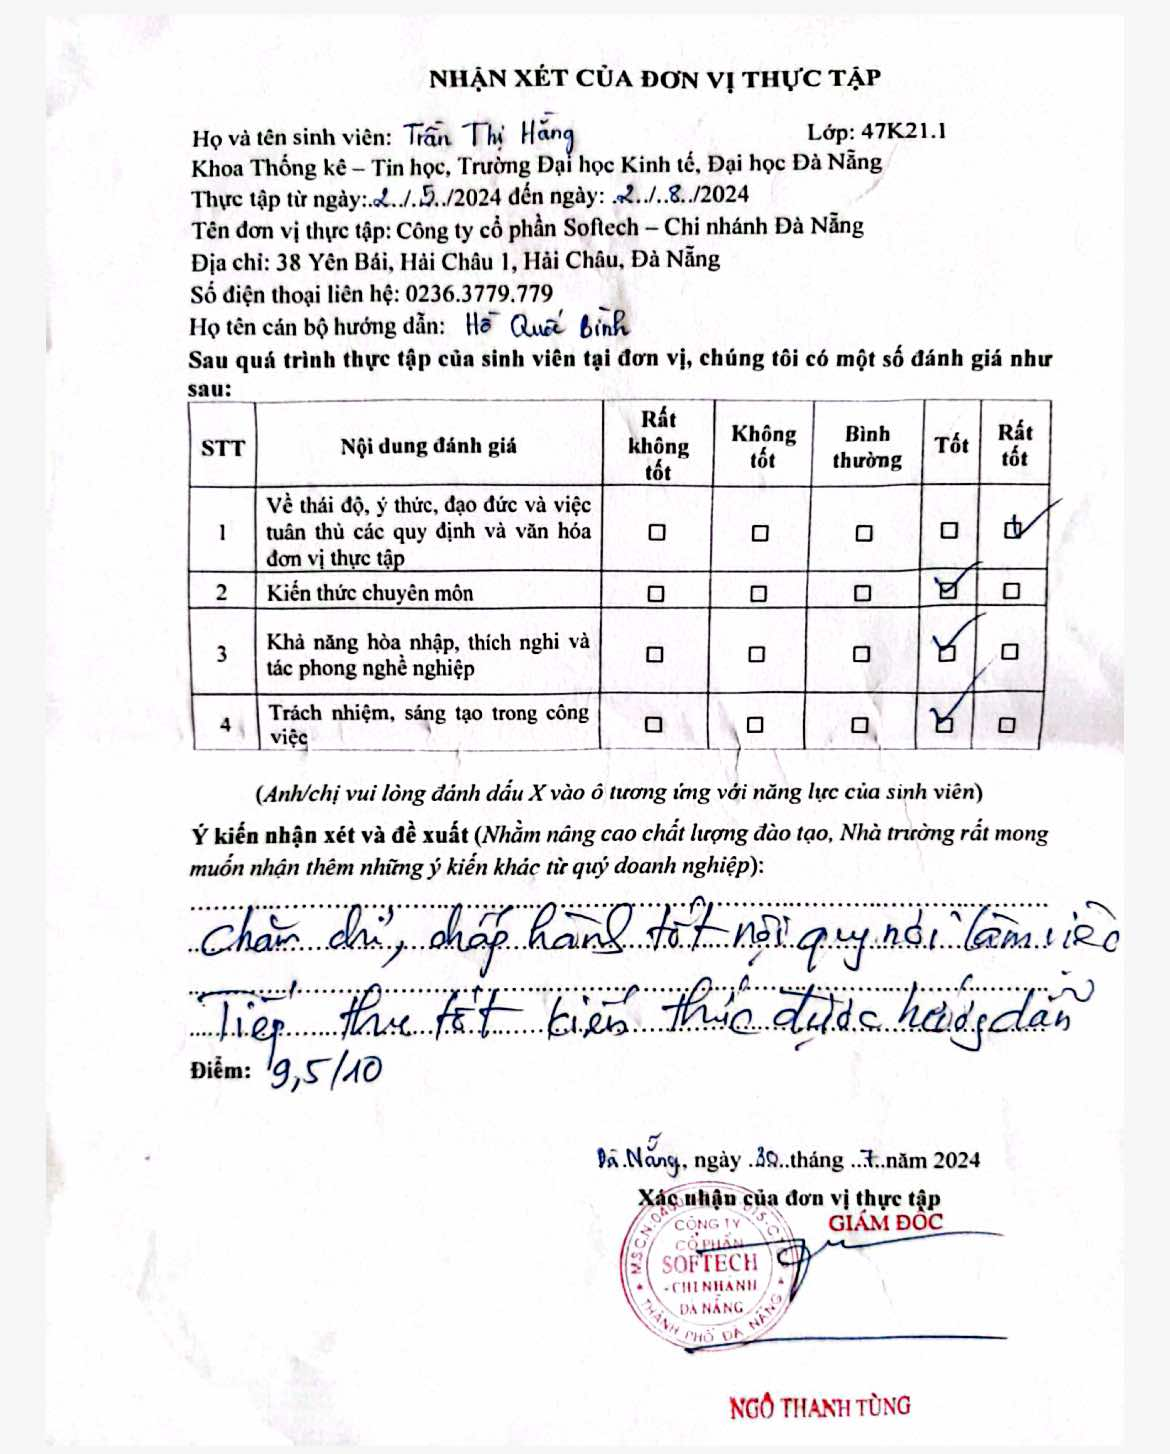 NHẬN XÉT CỦA ĐƠN VỊ THỰC TẬP
Họ và tên sinh viên: Trần Thị Hằng Lớp: 47K21.1
Khoa Thống kê – Tin học, Trường Đại học Kinh tế, Đại học Đà Nẵng
Thực tập từ ngày:.2../.5../2024 đến ngày: .2../..8../2024
Tên đơn vị thực tập: Công ty cổ phần Softech – Chi nhánh Đà Nẵng
Địa chỉ: 38 Yên Bái, Hải Châu 1, Hải Châu, Đà Nẵng
Số điện thoại liên hệ: 0236.3779.779
Họ tên cán bộ hướng dẫn: Hồ Quốc Bình
Sau quá trình thực tập của sinh viên tại đơn vị, chúng tôi có một số đánh giá như
sau:
STT Nội dung đánh giá Rất không tốt Không tốt Bình thường Tốt Rất tốt
1 Về thái độ, ý thức, đạo đức và việc
tuân thủ các quy định và văn hóa
đơn vị thực tập
2 Kiến thức chuyên môn
3 Khả năng hòa nhập, thích nghi và
tác phong nghề nghiệp
4 Trách nhiệm, sáng tạo trong công
việc
(Anh/chị vui lòng đánh dấu X vào ô tương ứng với năng lực của sinh viên)
Ý kiến nhận xét và đề xuất (Nhằm nâng cao chất lượng đào tạo, Nhà trường rất mong
muốn nhận thêm những ý kiến khác từ quý doanh nghiệp):
Chăm chỉ, chấp hành tốt nội quy nơi làm việc
Tiếp thu tốt kiến thức được hướng dẫn
Điểm: 9,5/10
Đà Nẵng, ngày .30..tháng ..7..năm 2024
Xác nhận của đơn vị thực tập
GIÁM ĐỐC
CÔNG TY
CỔ PHẦN
SOFTECH
- CHI NHÁNH
ĐÀ NẴNG
THÀNH PHỐ ĐÀ NẴNG
NGÔ THANH TÙNG